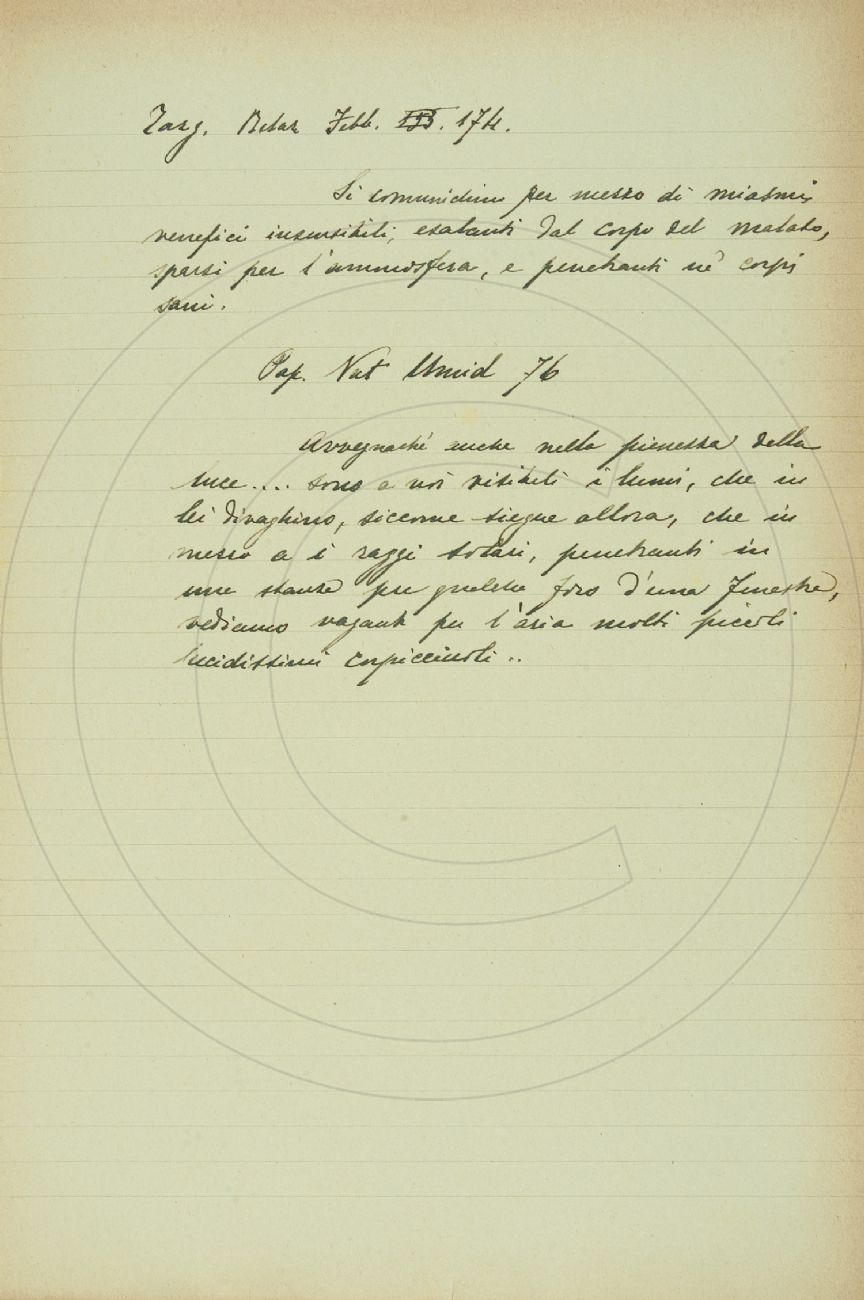 Targ. Relaz Febb. 174.
Si comunichino per mezzo di miasmi
venefici insensibili, esalanti dal corpo del malato,
sparsi per l'ammosfera, e penetranti ne' corpi
sani.
Pap. Nat Umid 76
Avvegnaché anche nella pienezza della
luce.... sono a noi visibili i lumi, che in
lei divaghino, siccome siegue allora, che in
mezzo a i raggi solari, penetranti in
una stanza per qualche foro d'una fenestra,
vediamo vaganti per l'aria molti piccoli
lucidissimi corpicciuoli..